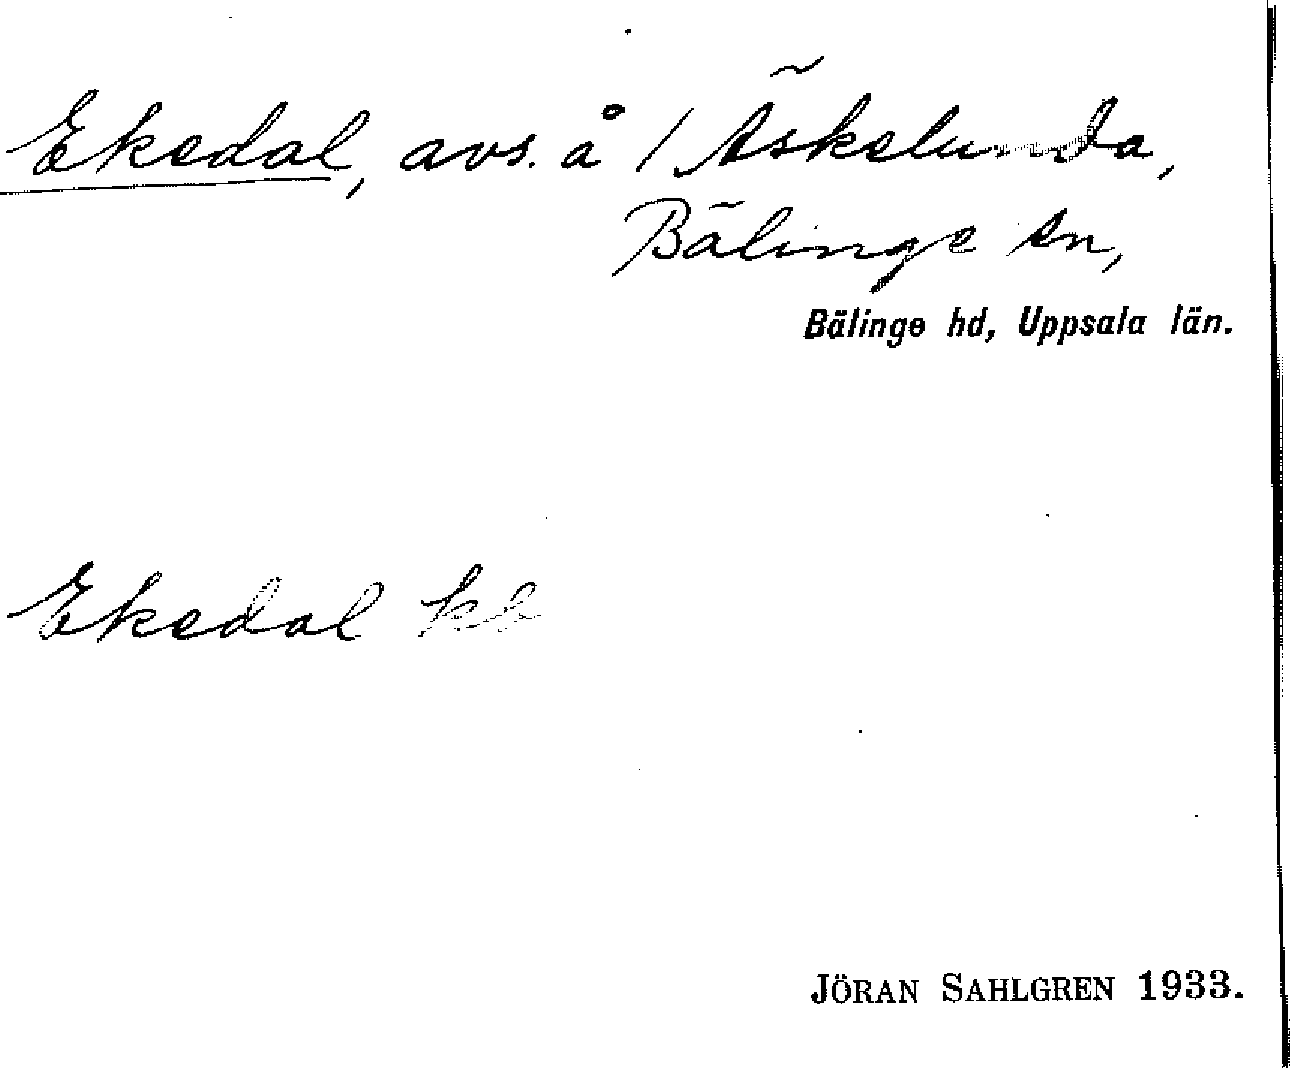 Ekedal, avs. å / Äskelunda,
Bälinge sn,
Bälinge hd, Uppsala län.
Ekedal
JÖRAN SAHLGREN 1933.